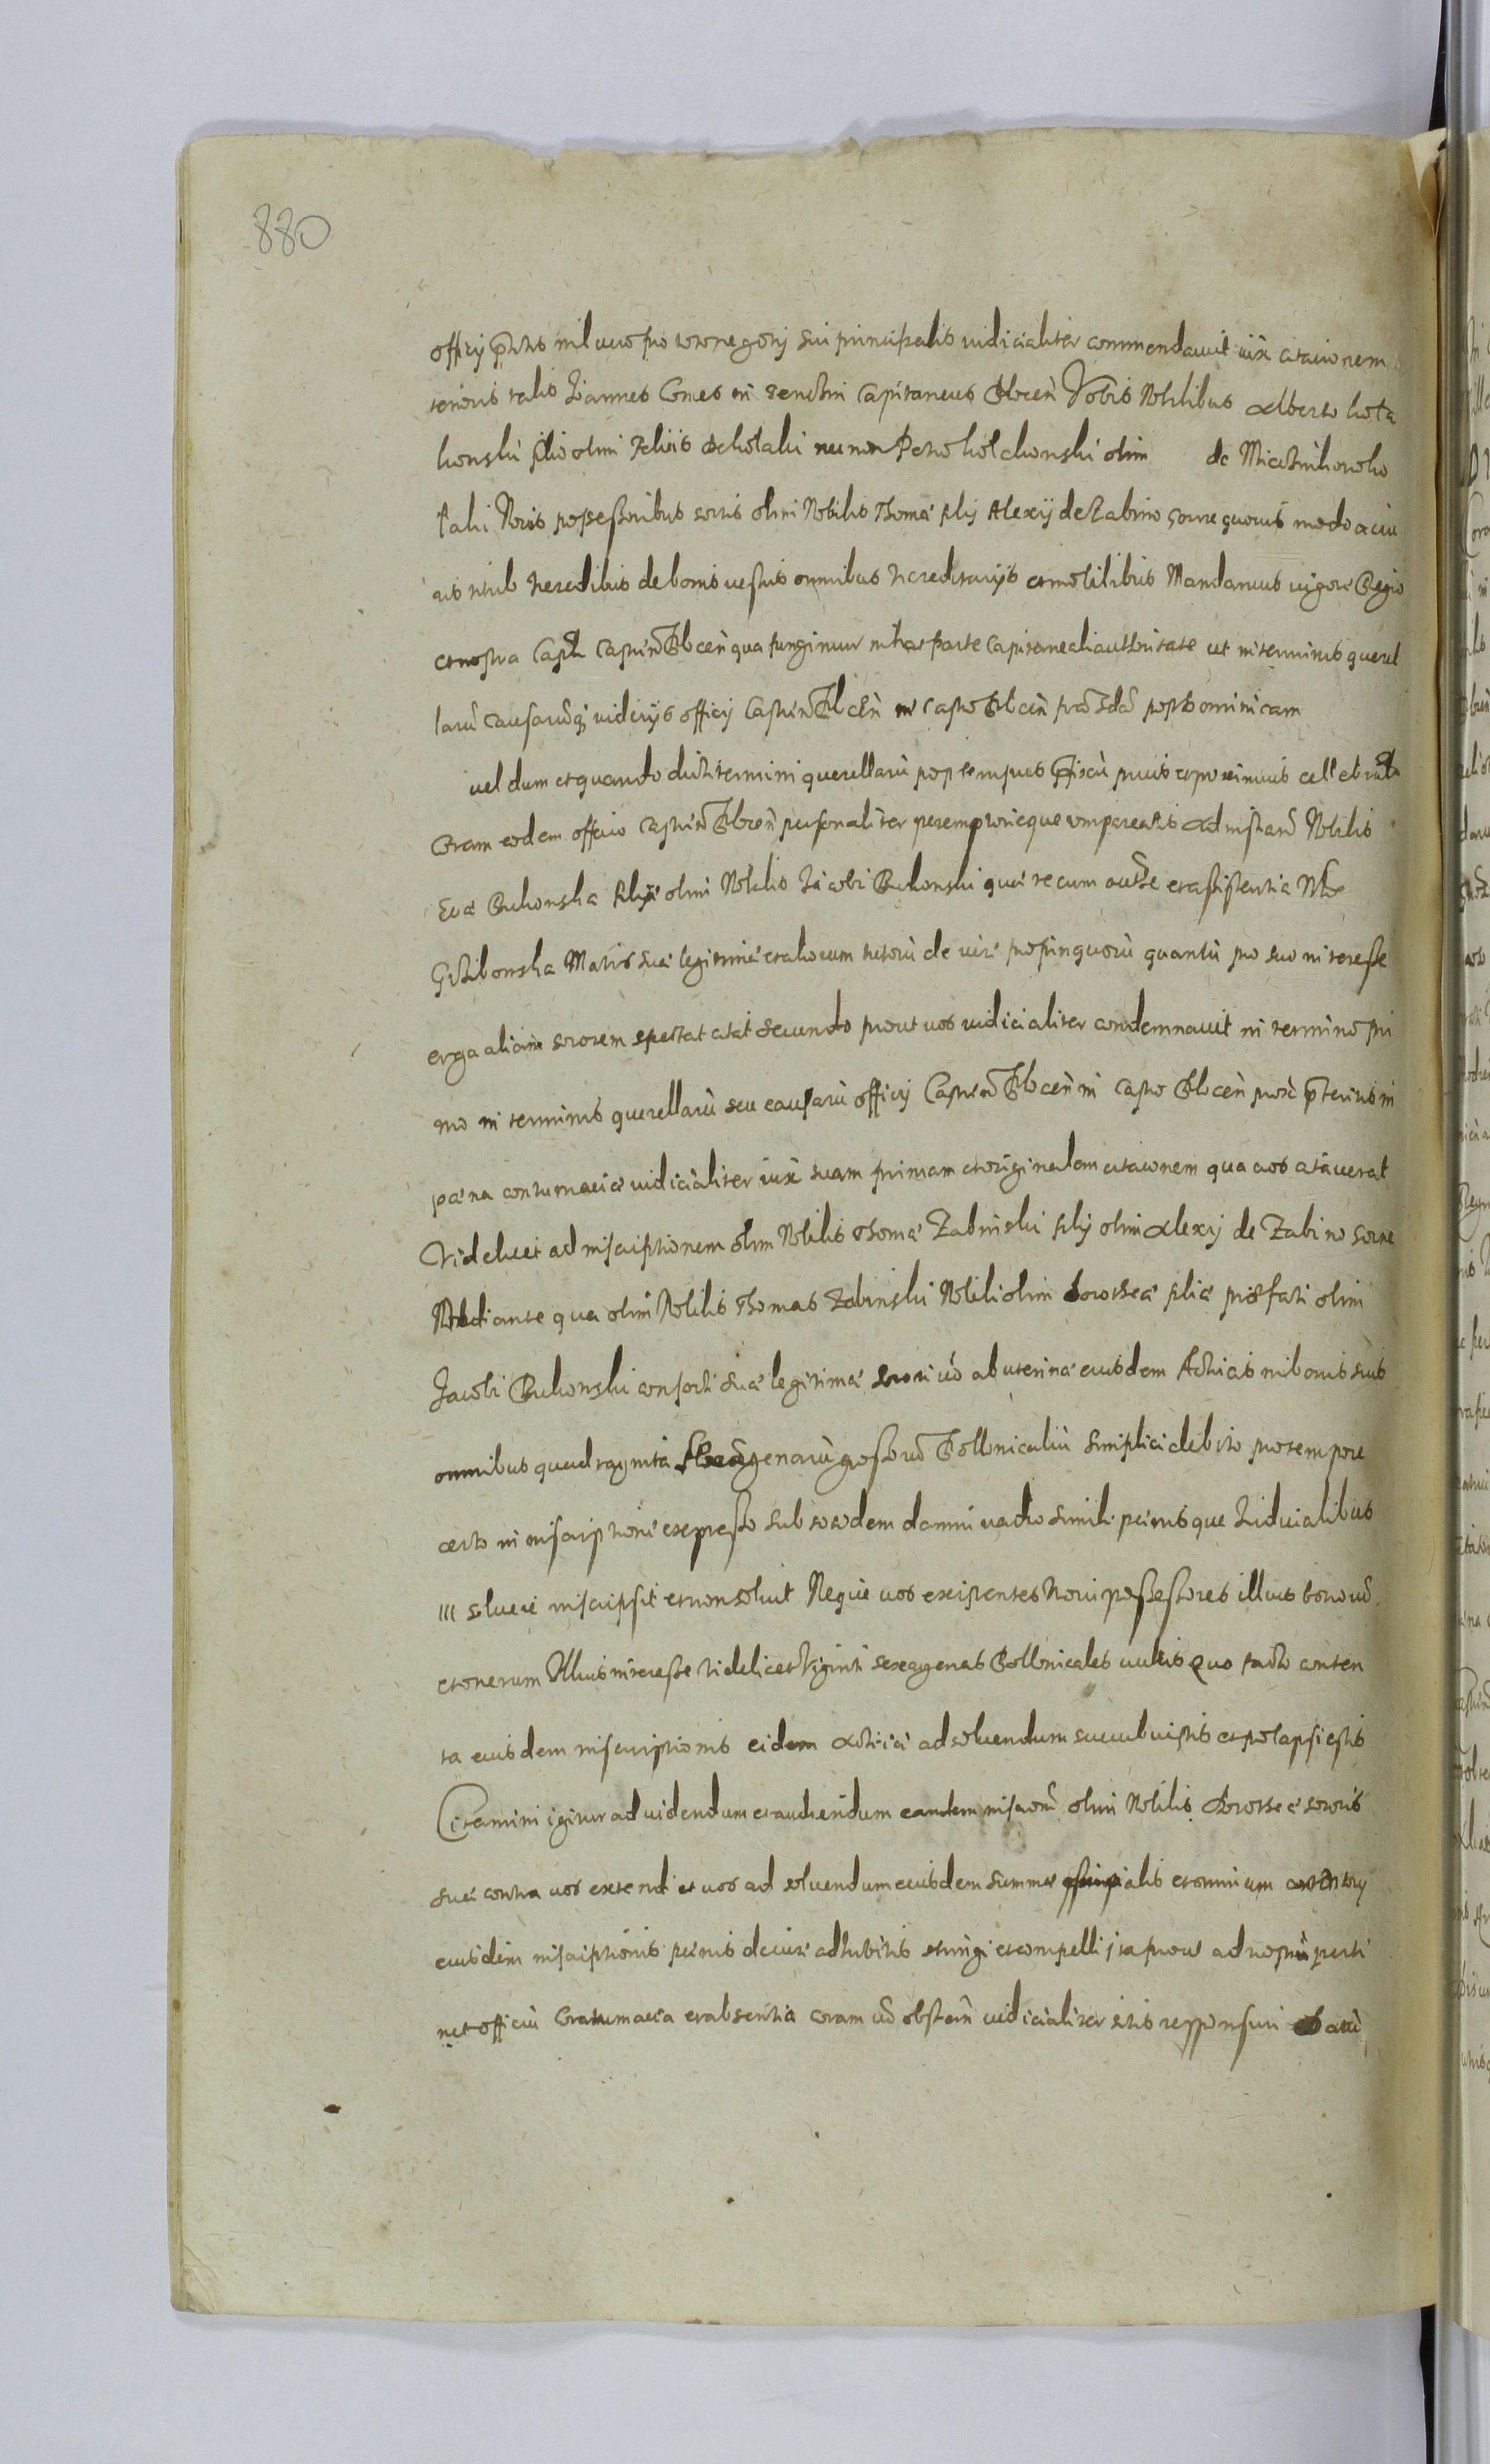 880
officij  nil  pro toto negotij sui principalis iudicialiter commendavit iux citacionem
tenoris talis Joannes Comes in Tenchin Capitaneus Plocen Vobis Nobilibus Alberto kota
konski filio olim Felicis de kotaki nec non Petro  olim de
taki Novis possessoribus sortis olim Nobilis Thomæ filij Alexij de Zabino  quovis modo
 heredibus de bonis vestris omnibus hereditarijs et mobilibus Mandamus vigore Regio
et nostra  Castren Plocen qua fungimur in hac parte Capitaneali authoritate ut in terminis querel
larū causarūq iudicijs officij Castren Plocen in castro Plocen  post Dominicam
vel dum et quando dicti termini querellarū post tempus  prius et proximius cellebrat
Coram eodem officio Castren Plocen personaliter peremptorieque compareatis Ad instan Nobilis
Evæ Bukonska filiæ olim Nobilis Jacobi Bukonski quæ te cum  et assistentia
 Matris suæ legitimæ et aliorum tutorū de iure propinquorū quantū pro suo interesse
erga aliam sororem spectat citat secundo prout vos iudicialiter condemnavit in termino pri
mo in terminis querellarū seu causarū officij Castren Plocen in castro Plocen prox preteritis in
pæna contumaciæ iudicialiter iux suam primam et originalem citacionem qua vos citaverat
Videlicet ad inscriptionem olim Nobilis Thomæ Zabinski filij olim Alexij de Zabino sorte
Mediante qua olim Nobilis Thomas Zabinski Nobili olim Dorotheæ filiæ præfati olim
Jacobi Bukonski consorti suæ legitimæ sorori vō ab uterinæ eiusdem Actricis in bonis suis
omnibus quadraginta sexagenarū grossorū Pollonicaliū simplici debito pro tempore
certo in inscriptione expresso sub totodem damni vadio simili pænisque Judicialibus
III solvere inscripsit et non solvit Neque vos existentes Novi possessores illius bonorū
et onerum Illius interesse videlicet Viginti sexagenas Pollonicales vultis Quo facto conten
ta eiusdem inscriptionis eidem Actrici ad solvendum succubuistis et prolapsi estis
Citamini igitur ad videndum et audiendum eandem  olim Nobilis Dorotheæ sororis
suæ contra vos extendi et vos ad solvendum eiusdem summæ principalis et omnium contentorū
eiusdem inscriptionis pænis de iure adhibitis astringi et compelli ita prout ad nostrū perti
net officiū Contumacia et absentia coram vō obstan iudicialiter sitis responsuri